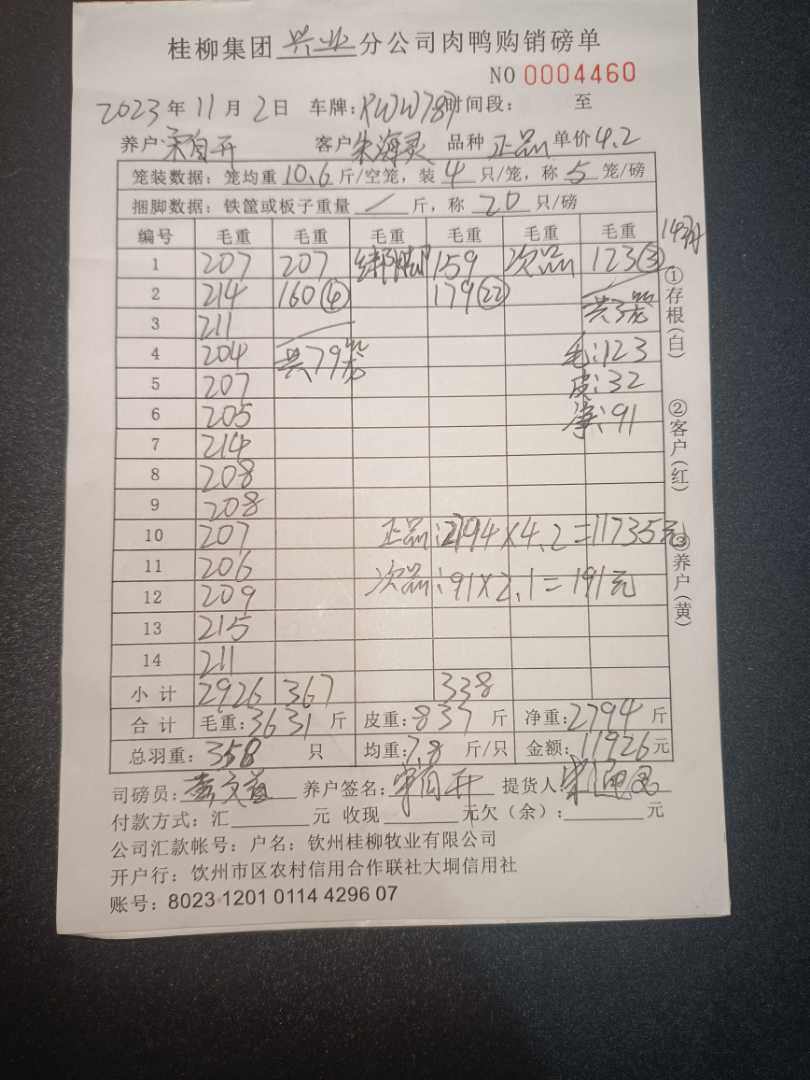 桂柳集团 兴业 分公司肉鸭购销磅单
NO 0004460
2023 年 11 月 2 日 车牌: 时间段: 至
养户: 客户 朱海灵 品种 正品 单价 4.2
笼装数据: 笼均重 10.6 斤/空笼, 装 4 只/笼, 称 5 笼/磅
捆脚数据: 铁筐或板子重量 / 斤, 称 20 只/磅
编号 毛重 毛重 毛重 毛重 毛重 毛重
1 207 207 绑脚 159 次品 123③
2 214 160④ 179㉒
3 211 共3笼
4 204 共79笼 毛:123
5 207 皮:32
6 205 净:91
7 214
8 208
9 208
10 207 正品:2794×4.2=11735元
11 206
12 209 次品:91×2.1=191元
13 215
14 211
小计 2926 367 338
合计 毛重:3631 斤 皮重:837 斤 净重:2794 斤
总羽重: 358 只 均重:7.8 斤/只 金额:11926元
司磅员: 养户签名: 提货人
付款方式: 汇 元 收现 元欠(余): 元
公司汇款帐号: 户名: 钦州桂柳牧业有限公司
开户行: 钦州市区农村信用合作联社大垌信用社
账号: 8023 1201 0114 4296 07
①存根(白)
②客户(红)
③养户(黄)